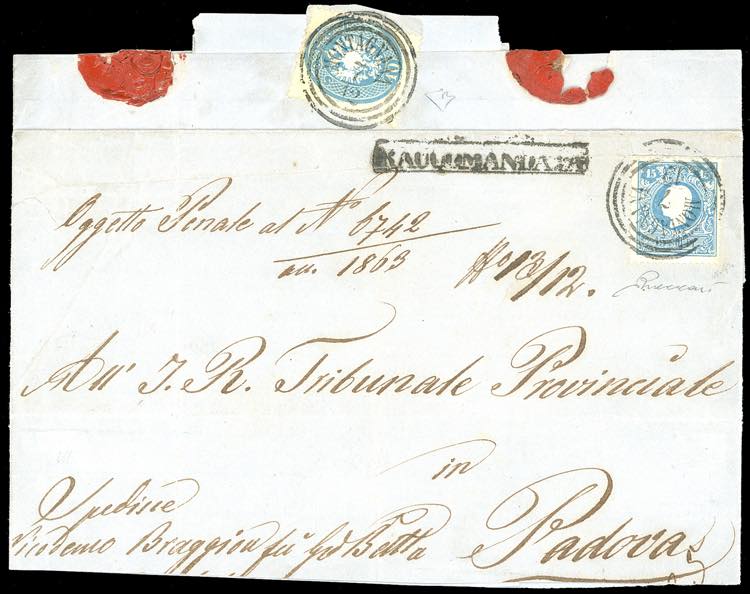 MONTAGNANA
RACCOMANDATA
15
Oggetto Penale al N° 6742
1863
N° 13/12.
All' I. R. Tribunale Provinciale
in
Padova
Spedisce
Nicodemo Braggion fu Gio Batta